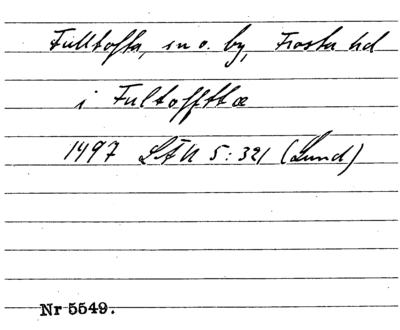 Fulltofta, sn o. by, Frosta hd
i Fultofftæ
1497 LÄU 5:321 (Lund)
Nr 5549.